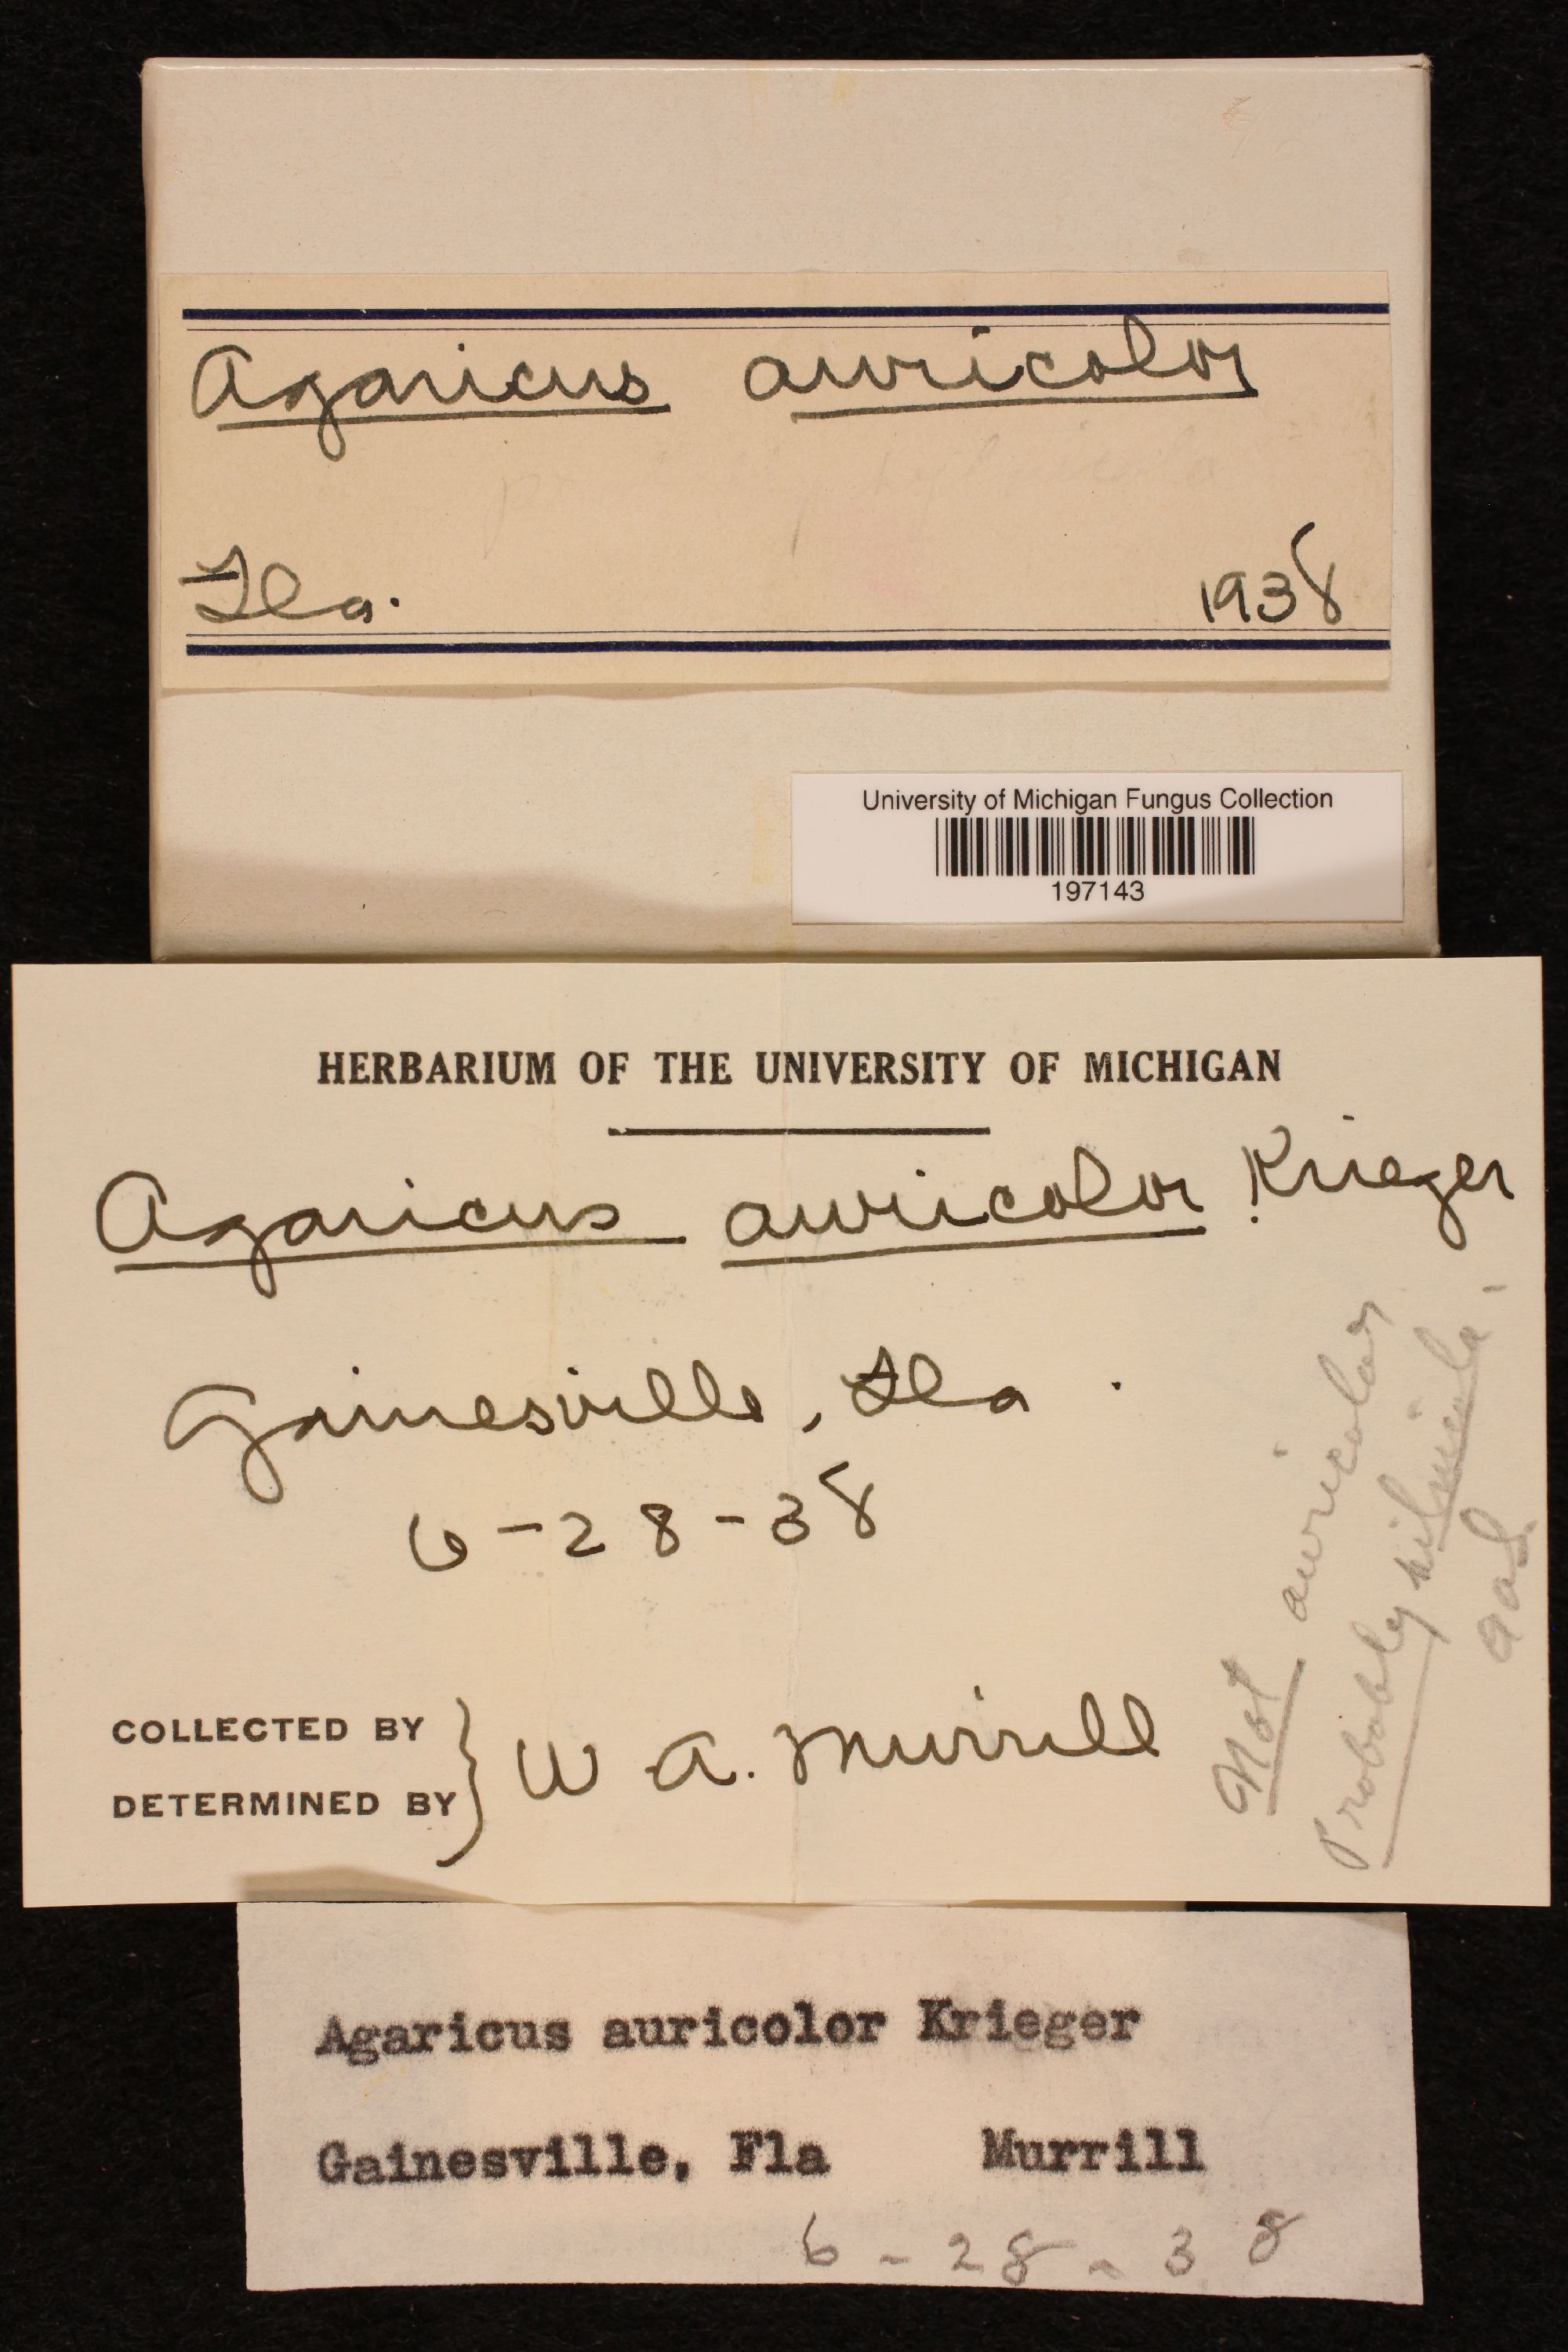 Agaricus auricolor
Fla.
1938
University of Michigan Fungus Collection
197143
HERBARIUM OF THE UNIVERSITY OF MICHIGAN
Agaricus auricolor Krieger
Gainesville, Fla.
6-28-38
COLLECTED BY
DETERMINED BY
W. A. Murrill
Not auricolor
Probably
Agaricus auricolor Krieger
Gainesville, Fla Murrill
6-28-38